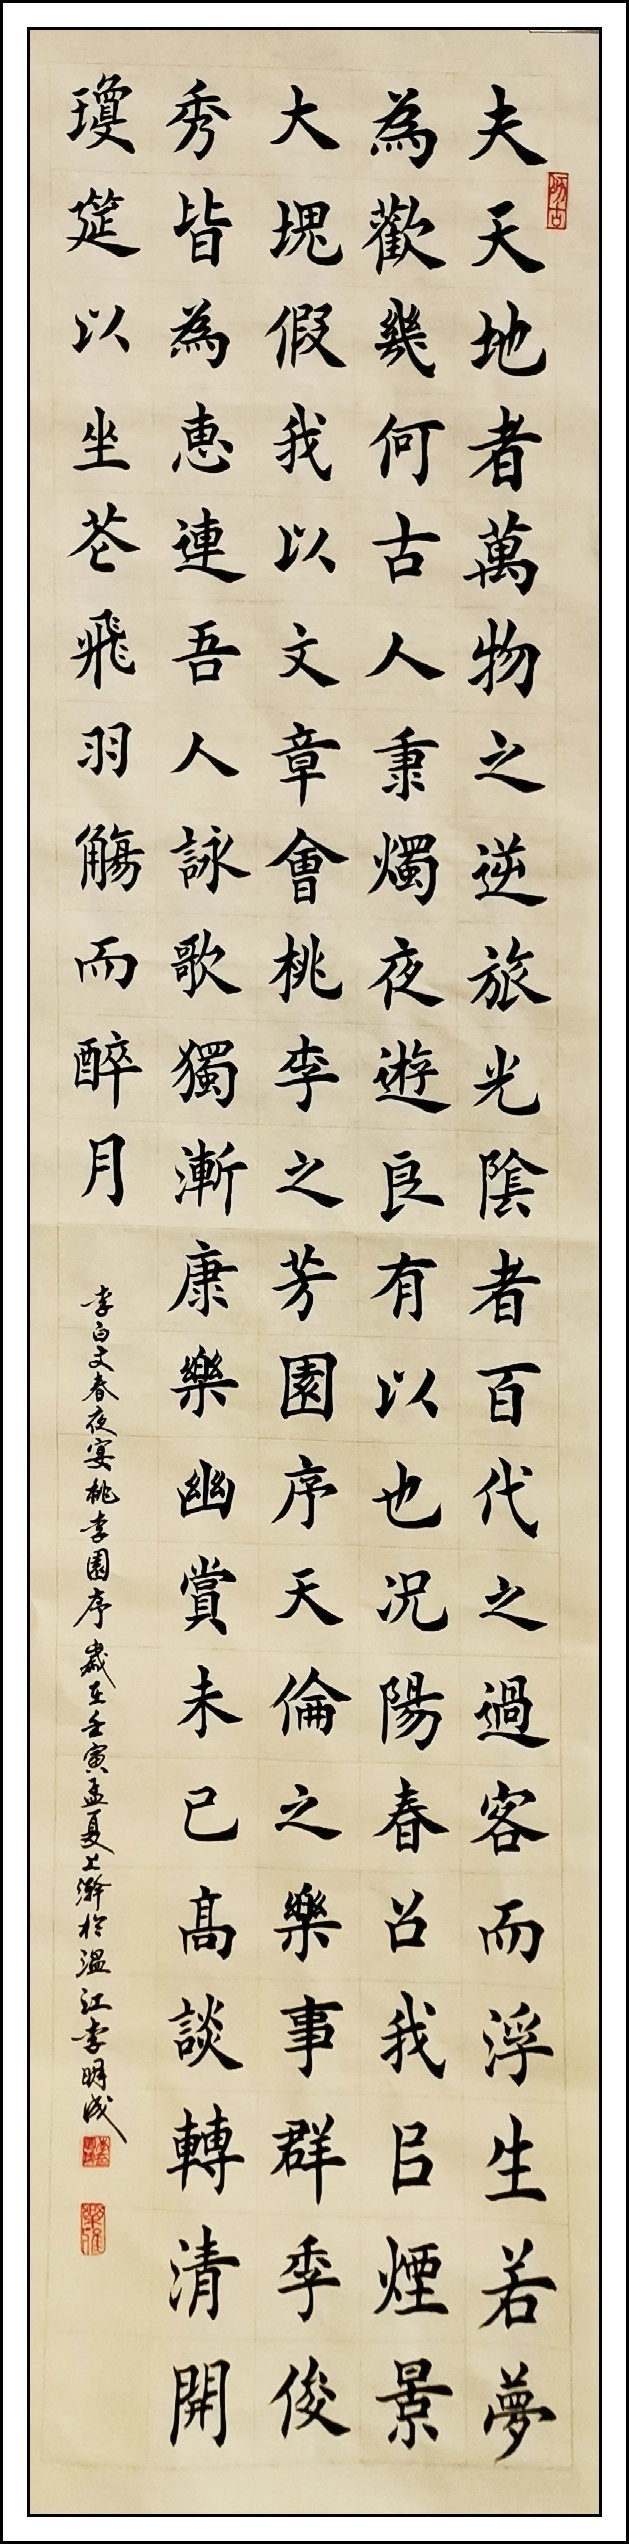 夫天地者萬物之逆旅光陰者百代之過客而浮生若夢
為歡幾何古人秉燭夜遊良有以也況陽春召我㠯煙景
大塊假我以文章會桃李之芳園序天倫之樂事群季俊
秀皆為惠連吾人詠歌獨漸康樂幽賞未已高談轉清開
瓊筵以坐花飛羽觴而醉月
李白文春夜宴桃李園序歲在壬寅孟夏上澣於溫江李明成